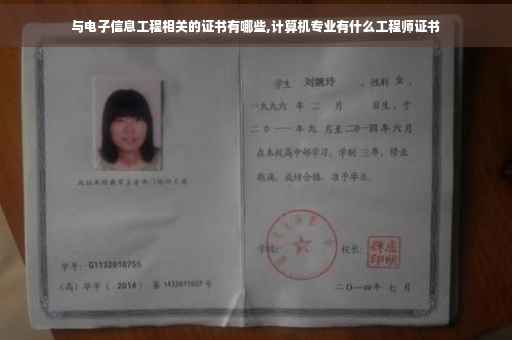 与电子信息工程相关的证书有哪些,计算机专业有什么工程师证书
学生 刘婉玲 ，性别 女 ，
一九九六 年 二 月 日生，于
二〇一一 年 九 月至 二〇一四 年 六 月
在本校高中部学习，学制 三 年，修业
期满，成绩合格，准予毕业。
学号： G1132010755
（高）毕字（ 2014 ）第 1432011007 号
学校：
校长：
二〇一四年 七 月